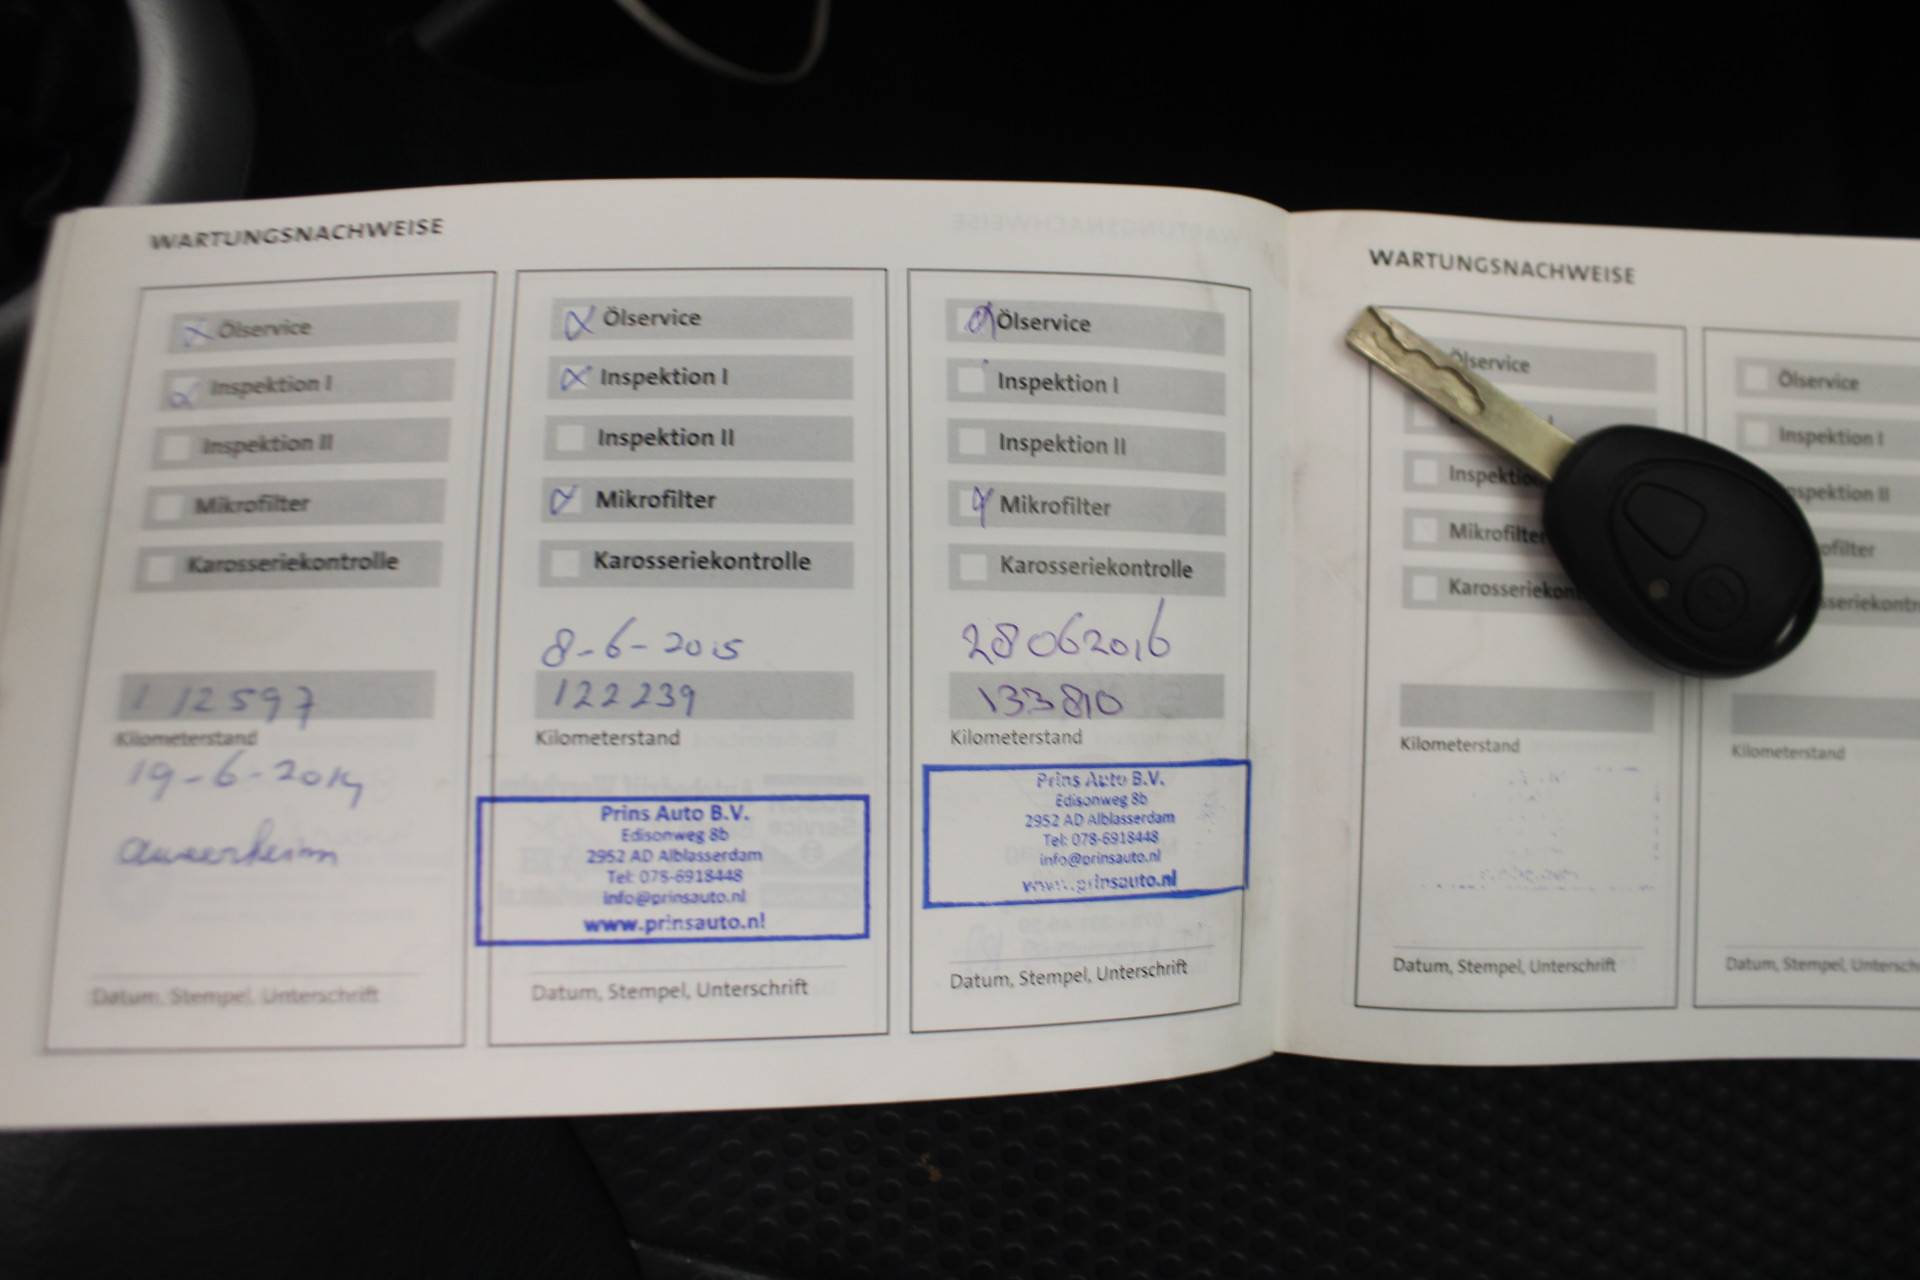 WARTUNGSNACHWEISE
Ölservice
Inspektion I
Inspektion II
Mikrofilter
Karosseriekontrolle
112597
Kilometerstand
19-6-2014
Datum, Stempel, Unterschrift
Ölservice
Inspektion I
Inspektion II
Mikrofilter
Karosseriekontrolle
8-6-2015
122239
Kilometerstand
Prins Auto B.V.
Edisonweg 8b
2952 AD Alblasserdam
Tel: 078-6918448
info@prinsauto.nl
www.prinsauto.nl
Datum, Stempel, Unterschrift
Ölservice
Inspektion I
Inspektion II
Mikrofilter
Karosseriekontrolle
28062016
133810
Kilometerstand
Prins Auto B.V.
Edisonweg 8b
2952 AD Alblasserdam
Tel: 078-6918448
info@prinsauto.nl
www.prinsauto.nl
Datum, Stempel, Unterschrift
WARTUNGSNACHWEISE
Ölservice
I
Inspektion
Mikrofilter
Karosseriekont
Kilometerstand
Datum, Stempel, Unterschrift
Ölservice
Inspektion I
nspektion II
ofilter
sseriekontr
Kilometerstand
Datum, Stempel, Untersch